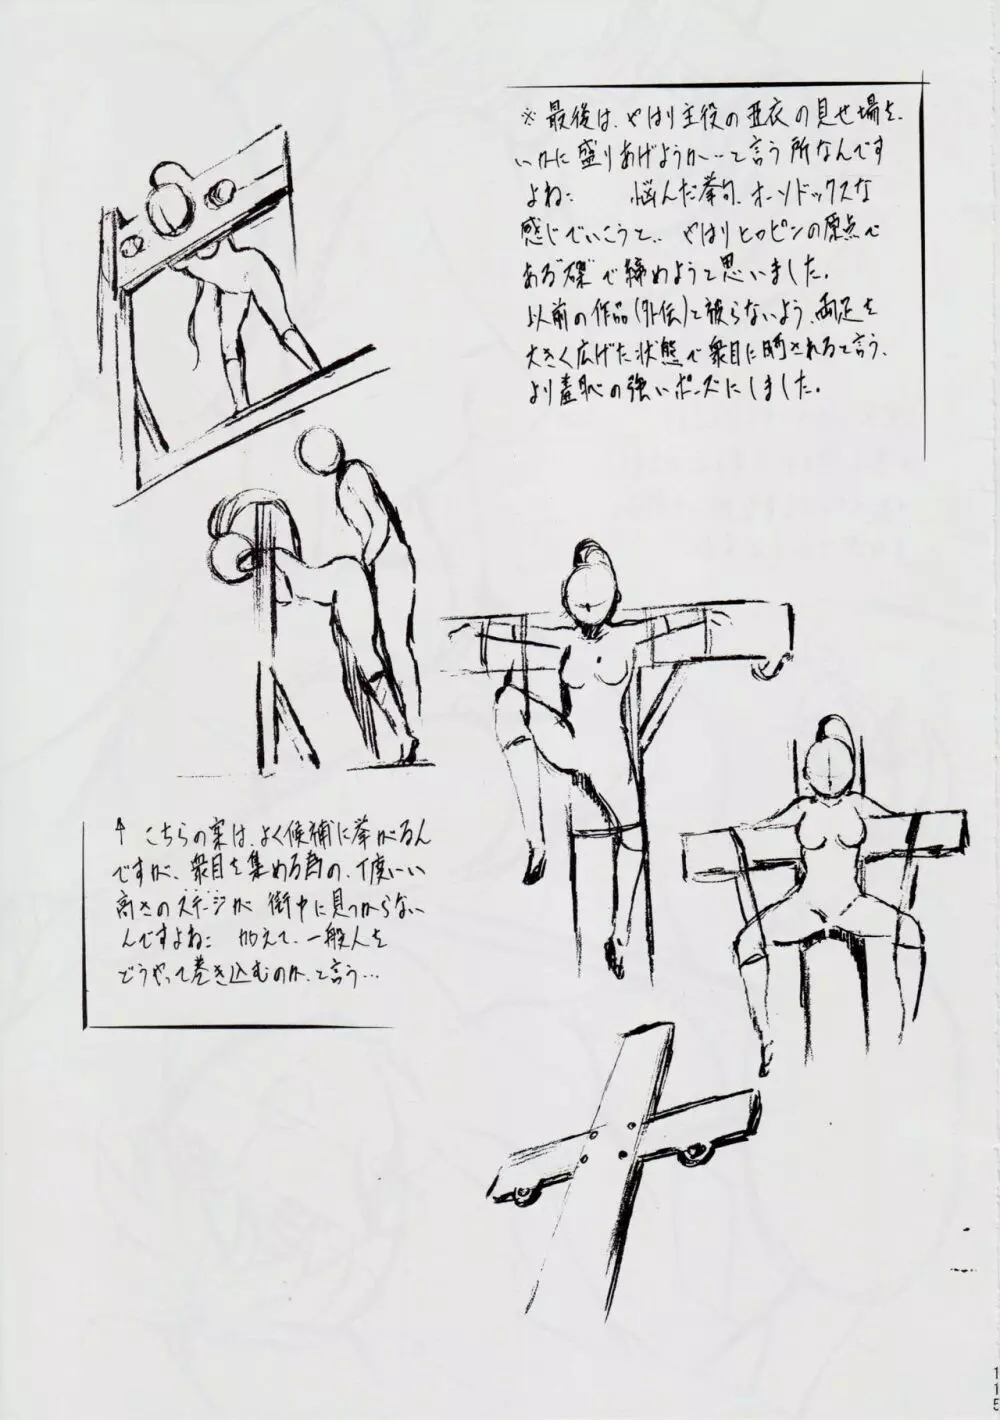 ※最後は、やはり主役の亜衣の見せ場を、
いかに盛りあげようか…と言う所なんです
よね… 悩んだ挙句、オーソドックスな
感じでいこうと… やはりヒロピンの原点で
ある"磔"で締めようと思いました。
以前の作品(外伝)と被らないよう、両足を
大きく広げた状態で衆目に晒されると言う、
より羞恥の強いポーズにしました。
↑こちらの案は、よく候補に挙がるん
ですが、衆目を集める為の、丁度いい
高さのステージが街中に見つからない
んですよね… 加えて、一般人を
どうやって巻き込むのか、と言う…
115